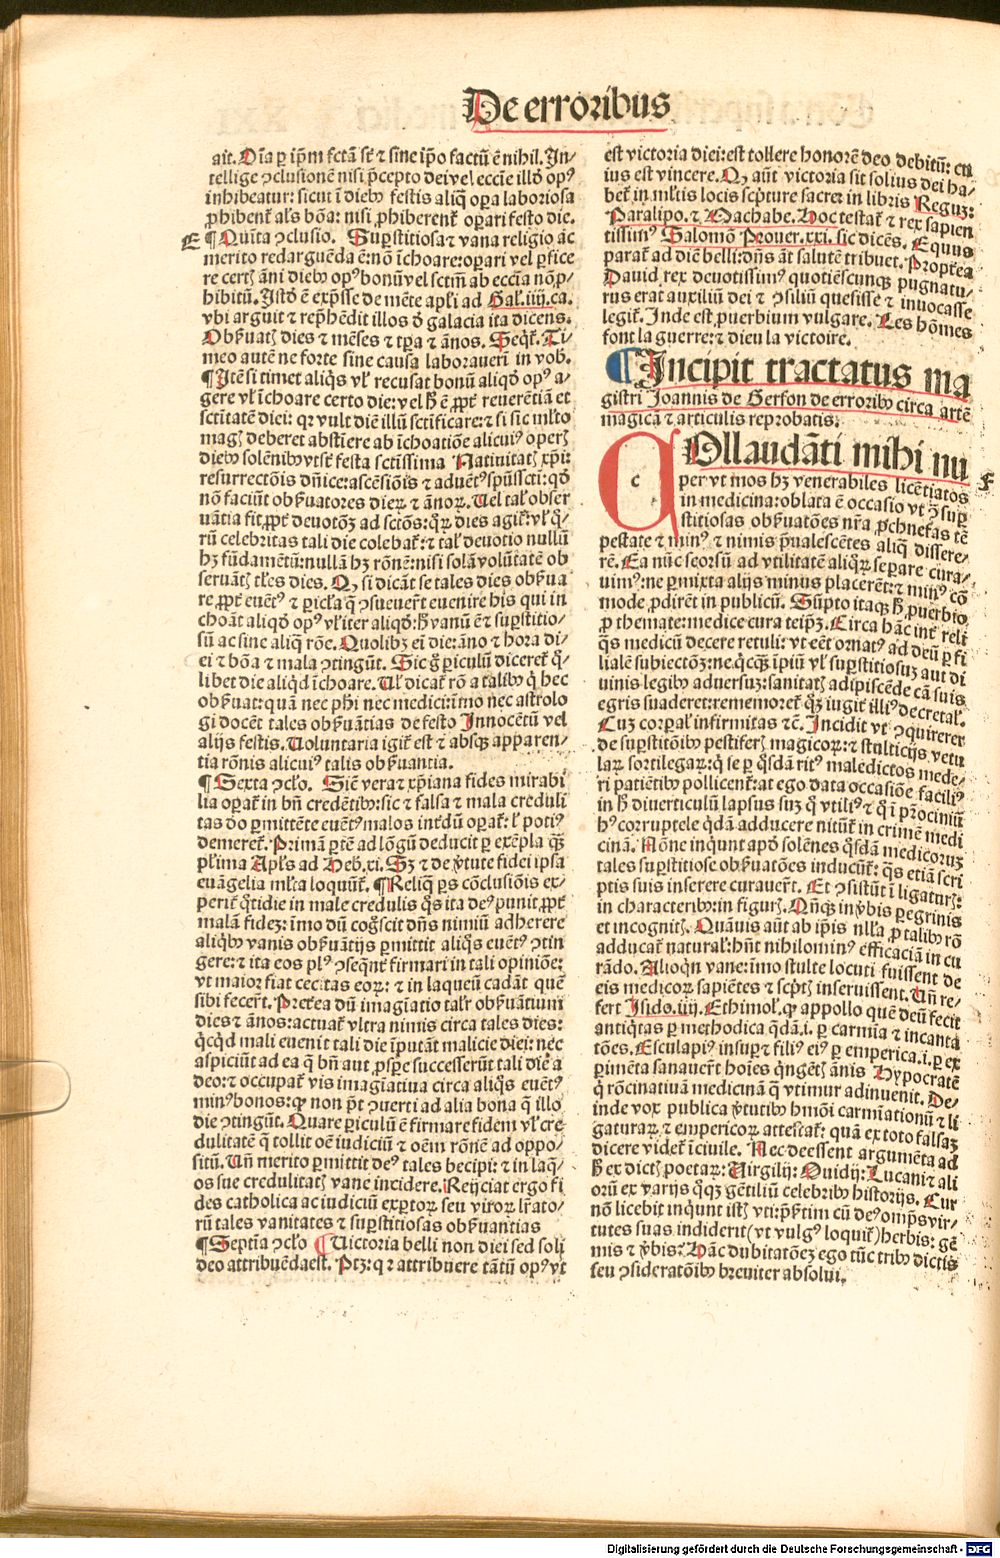 De erroribus
ait. Oı̄a ꝑ ip̄m fctā sūt ⁊ sine ip̄o factū ē nihil. In⸗
tellige ꝯclusionē nisi p̄cepto dei vel eccīe illđ opꝰ
inhibeatur: sicut ī diebꝫ festis aliq̄ oꝑa laboriosa
ꝓhibent᷑ al̓s bōa: nisi ꝓhiberent᷑ oꝑari festo die.
E ¶ Quīta ꝯclusio. Suꝑstitiosa ⁊ vana religio ac
merito redarguēda ē: nō īchoare: oꝑari vel ꝑfice
re certꝭ āni diebꝫ opꝰ bonū vel sctm̄ ab eccīa nō ꝓ⸗
hibitū. Istđ ē exp̄sse de mēte apl̓i ad Gal̓. iiij. ca.
vbi arguit ⁊ rep̄hēdit illos đ galacia ita dicens.
Obẜuatꝭ dies ⁊ mēses ⁊ tꝑa ⁊ ānos. Seqt᷑. Ti⸗
meo autē ne forte sine causa laborauerī in vob̓.
¶ Itē si timet aliq̄s vl̓ recusat bonū aliqđ opꝰ a⸗
gere vl̓ īchoare certo die: vel ꝫ ē ꝓpt̓ reuerētiā et
sctitatē diei: qꝛ vult diē illū sctificare: ⁊ si sic ml̓to
magꝭ deberet abstīere ab īchoatiōe alicuiꝰ operꝭ
diebꝫ solēnibꝫ vtst᷑ festa sctīssima Natiuitatꝭ xp̄i:
resurrectōis dn̄ice: ascēsiōis ⁊ aduētꝰ spūssctī: qđ
nō faciūt obẜuatores dierꝝ ⁊ ānoꝝ. Uel tal̓ obser
uātia fit ꝓpt̓ deuotōꝫ ad sctōs: qͦꝝ dies agit᷑: vl̓ qͦ⸗
rū celebritas tali die colebat᷑: ⁊ tal̓ deuotio nullū
hꝫ fūdamētū: nullā hꝫ rōnē: nisi solā volūtatē ob
seruātꝭ tl̓es dies. Qꝫ si dicāt se tales dies obẜua
re ꝓpt̓ euētꝰ ⁊ ꝑicl̓a q̄ ꝯsueuer̄t euenire his qui in
choāt aliqđ opꝰ vl̓ iter aliqđ: ꝫ vanū ē ⁊ suꝑstitio⸗
sū ac sine aliq̄ rōe. Quolibꝫ eī die: āno ⁊ hora di⸗
ei ⁊ bōa ⁊ mala ꝯtingūt. Sic g̊ ꝑiculū diceret᷑ q̄⸗
libet die aliqđ īchoare. Ul̓ dicat᷑ rō a talibꝫ q̄ hec
obẜuat: quā nec phī nec medici: īmo nec astrolo
gi docēt tales obẜuātias de festo Innocētū vel
alijs festis. Uoluntaria igit᷑ est ⁊ absqꝫ apparen⸗
tia rōnis alicuiꝰ talis obẜuantia.
¶ Sexta ꝯclo. Sic̄ vera ⁊ xp̄iana fides mirabi
lia oꝑat᷑ in bn̄ credētibꝫ: sic ⁊ falsa ⁊ mala creduli
tas đo ꝑmittēte euētꝰ malos int̓dū oꝑat᷑: l̓ potiꝰ
demeret᷑. Primā ꝑtē ad lōgū deducit ꝑ exēpla qꝫ̄
pl̓ima Apl̓s ad Heb̓. xi. Sꝫ ⁊ de v̓tute fidei ipsa
euāgelia ml̓ta loquūt᷑. ¶ Reliq̄ ꝑs cōclusiōis ex⸗
perit᷑ q̊tidie in male credulis q̊s ita deꝰ punit ꝓpt̓
malā fideꝫ: īmo dū cogscit dn̄s nimiū adherere
aliqͥbꝫ vanis obẜuātijs ꝑmittit aliq̄s euētꝰ ꝯtin
gere: ⁊ ita eos plꝰ ꝯseqn̄t᷑ firmari in tali opiniōe:
vt maior fiat cecitas eoꝝ: ⁊ in laqueū cadāt quē
sibi fecer̄t. Pret̓ea dū imagīatio tal̓r obẜuātium
dies ⁊ ānos: actuat᷑ vltra nimis circa tales dies:
qͥcqđ mali euenit tali die īputāt malicie diei: nec
aspiciūt ad ea q̄ bn̄ aut ꝓspe̓ successerūt tali die a
deo: ⁊ occupat᷑ vis imagīatiua circa aliq̄s euētꝰ
minꝰ bonos: ꝙ non pn̄t ꝯuerti ad alia bona q̄ illo
die ꝯtingūt. Quare ꝑiculū ē firmare fidem vl̓ cre
dulitatē q̄ tollit oē iudiciū ⁊ oēm rōnē ad oppo⸗
sitū. Un̄ merito ꝑmittit deꝰ tales decipi: ⁊ in laq̄⸗
os sue credulitatꝭ vane incidere. Reijciat ergo fi
des catholica ac iudiciū exꝑtoꝝ seu viroꝝ lr̄ato⸗
rū tales vanitates ⁊ suꝑstitiosas obẜuantias
¶ Septīa ꝯclo ¶ Uictoria belli non diei sed soli
deo attribuēda est. Ptꝫ: qꝛ attribuere tātū opꝰ vt
est victoria diei: est tollere honorē deo debitū: cu
ius est vincere. Qꝫ aūt victoria sit solius dei ha⸗
bet᷑ in ml̓tis locis scp̄ture sacre: in libris Reguꝫ:
Paralipo. ⁊ Machabe. Hoc testat᷑ ⁊ rex sapien
tissimꝰ Salomō Prouer. xxi. sic dicēs. Equus
parat᷑ ad diē belli: dn̄s aūt salutē tribuet. Propt̓ea
Dauid rex deuotissimꝰ quotiēscunqꝫ pugnatu⸗
rus erat auxiliū dei ⁊ ꝯsiliū quesisse ⁊ inuocasse
legit᷑. Inde est ꝓuerbium vulgare. Les hōmes
font la guerre: ⁊ dieu la victoire.
¶ Incipit tractatus ma
gistri Joannis de Gerson de erroribꝫ circa artē
magicā ⁊ articulis reprobatis.
COllaudāti mihi nu F
per vt mos hꝫ venerabiles licētiatos
in medicina: oblata ē occasio vt ꝯ̄ suꝑ
stitiosas obẜuatōes nr̄a ꝓchnefas tē
pestate ⁊ minꝰ ⁊ nimis p̄ualescētes aliq̄ dissere⸗
rē. Ea nūc seorsū ad vtilitatē aliqͦꝝ seꝑare cura⸗
uimꝰ: ne ꝑmixta alijs minus placerēt: ⁊ minꝰ cō
mode ꝓdirēt in publicū. Sūpto itaqꝫ ꝫ ꝓuerbio
ꝓ themate: medice cura teip̄ꝫ. Circa hāc int̓ reli
q̄s medicū decere retuli: vt eēt ornatꝰ ad deū ꝑ fi
lialē subiectōꝫ: ne qͥcqꝫ̄ īpiū vl̓ suꝑstitiosuꝫ aut di
uinis legibꝫ aduersuꝫ: sanitatꝭ adipiscēde cā suis
egris suaderet: rememoret᷑ qͦꝫ iugit̓ illiꝰ decretal̓.
Cuꝫ corꝑal̓ infirmitas ⁊c̄. Incidit vt ꝯquirerer
de suꝑstitōibꝫ pestiferꝭ magicoꝝ: ⁊ stulticijs vetu
laꝝ sortilegaꝝ: q̄ se ꝑ qͦsdā ritꝰ maledictos mede⸗
ri patiētibꝫ pollicent᷑: at ego data occasiōe faciliꝰ
in ꝫ diuerticulū lapsus suꝫ qͦ vtiliꝰ ⁊ qͥ ī pr̄ociniū
hꝰ corruptele qͦdā adducere nitūt᷑ in crimē medi
cinā. Nōne inqunt apđ solēnes qͦsdā medicoruꝫ
tales suꝑstitiose obẜuatōes inducūt᷑: q̄s etiā scri
ptis suis inserere curauer̄t. Et ꝯsistūt ī ligaturꝭ:
in characteribꝫ: in figurꝭ. Qn̄qꝫ in v̓bis ꝑegrinis
et incognitꝭ. Quāuis aūt ab ip̄is nll̓a ꝓ talibꝫ rō
adducat᷑ natural̓: hn̄t nihilominꝰ efficaciā in cu
rādo. Alioqn̄ vane: īmo stulte locuti fuissent de
eis medicoꝝ sapiētes ⁊ scp̄tꝭ inseruissent. Un̄ re⸗
fert Isido. iiij. Ethimol̓. ꝙ appollo quē deū fecit
antiqͥtas ꝑ methodica qͦdā. i. ꝑ carmīa ⁊ incanta
tōes. Esculapiꝰ insuꝑ ⁊ filiꝰ eiꝰ ꝑ emperica. i. ꝑ ex
ꝑimēta sanauer̄t hoīes qͥngētꝭ ānis Hypocratē
qͥ rōcinatiuā medicinā q̄ vtimur adinuenit. De⸗
inde vox publica v̓tutibꝫ hmōi carmīationū ⁊ li
gaturaꝝ ⁊ empericoꝝ attestat᷑: quā ex toto falsaꝫ
dicere videt᷑ īciuile. Nec deessent argumēta ad
ꝫ ex dictꝭ poetaꝝ: Uirgilij: Ouidij: Lucani ⁊ ali
orū ex varijs qͦꝫ gētiliū celebribꝫ historijs. Cur
nō licebit inqunt istꝭ vti: p̄s̄tim cū deꝰ omp̄s vir⸗
tutes suas indiderit (vt vulgꝰ loquit᷑) herbis: gē
mis ⁊ v̓bis: Hāc dubitatōeꝫ ego tūc tribꝫ dictis
seu ꝯsideratōibꝫ breuiter absolui.
Digitalisierung gefördert durch die Deutsche Forschungsgemeinschaft - DFG